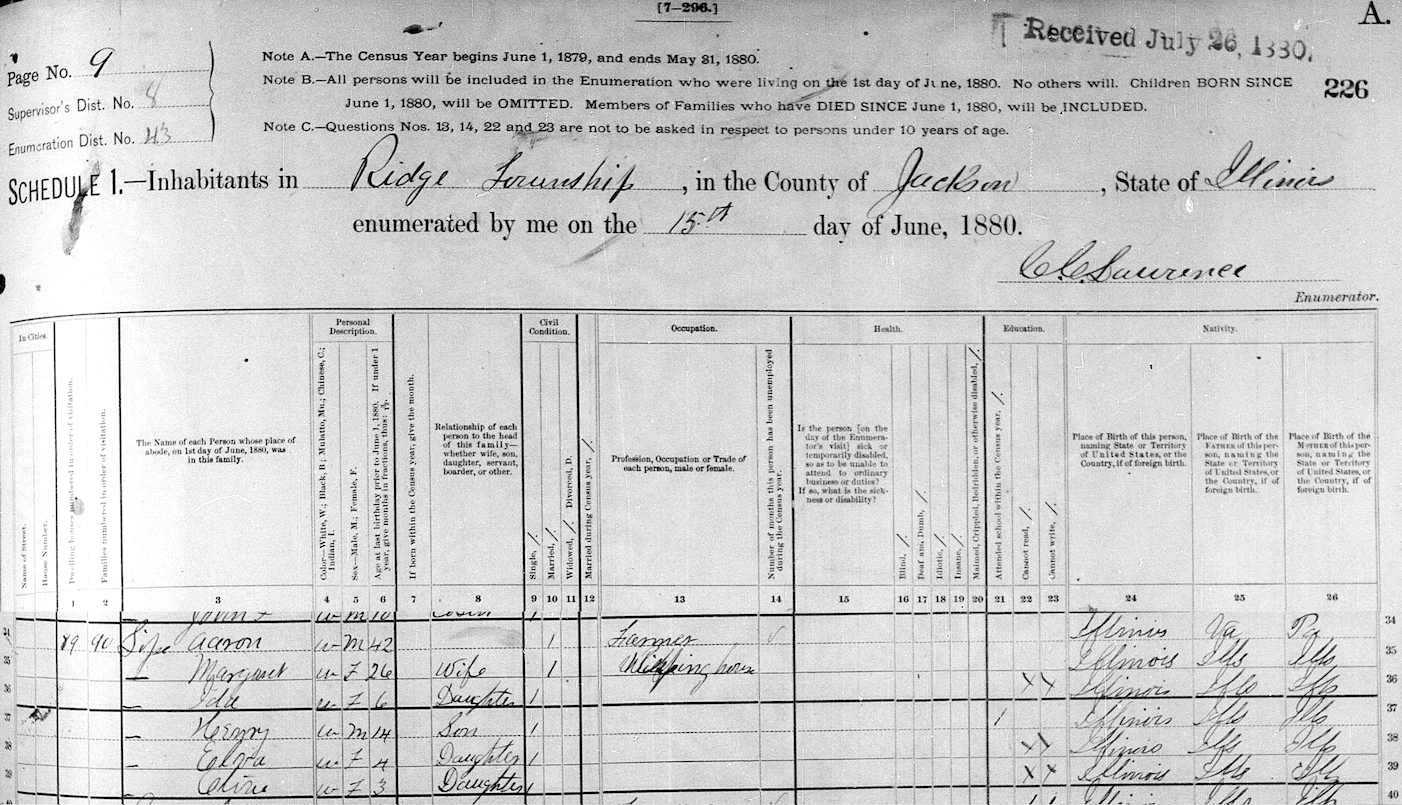 [7—296.]
A.
Received July 26, 1880.
226
Page No. 9
Supervisor's Dist. No. 8
Enumeration Dist. No. 43
Note A.—The Census Year begins June 1, 1879, and ends May 31, 1880.
Note B.—All persons will be included in the Enumeration who were living on the 1st day of June, 1880. No others will. Children BORN SINCE
June 1, 1880, will be OMITTED. Members of Families who have DIED SINCE June 1, 1880, will be INCLUDED.
Note C.—Questions Nos. 13, 14, 22 and 23 are not to be asked in respect to persons under 10 years of age.
SCHEDULE 1.—Inhabitants in Ridge Township, in the County of Jackson, State of Illinois
enumerated by me on the 15th day of June, 1880.
C.C. Lawrence
Enumerator.
In Cities.
Name of Street.
House Number.
Dwelling houses numbered in order of visitation.
Families numbered in order of visitation.
The Name of each Person whose place of
abode, on 1st day of June, 1880, was
in this family.
Personal
Description.
Color—White, W.; Black, B.; Mulatto, Mu.; Chinese, C.;
Indian, I.
Sex—Male, M.; Female, F.
Age at last birthday prior to June 1, 1880. If under 1
year, give months in fractions, thus: 3/12.
If born within the Census year, give the month.
Relationship of each
person to the head
of this family—
whether wife, son,
daughter, servant,
boarder, or other.
Civil
Condition.
Single, /.
Married, /.
Widowed, /. Divorced, D.
Married during Census year, /.
Occupation.
Profession, Occupation or Trade of
each person, male or female.
Number of months this person has been unemployed
during the Census year.
Health.
Is the person [on the
day of the Enumera-
tor's visit] sick or
temporarily disabled,
so as to be unable to
attend to ordinary
business or duties?
If so, what is the sick-
ness or disability?
Blind, /.
Deaf and Dumb, /.
Idiotic, /.
Insane, /.
Maimed, Crippled, Bedridden, or otherwise disabled, /.
Education.
Attended school within the Census year, /.
Cannot read, /.
Cannot write, /.
Nativity.
Place of Birth of this person,
naming State or Territory
of United States, or the
Country, if of foreign birth.
Place of Birth of the
FATHER of this per-
son, naming the
State or Territory
of United States, or
the Country, if of
foreign birth.
Place of Birth of the
MOTHER of this per-
son, naming the
State or Territory
of United States, or
the Country, if of
foreign birth.
1 2 3 4 5 6 7 8 9 10 11 12 13 14 15 16 17 18 19 20 21 22 23 24 25 26
John F W M 10 1 34
89 90 Sipe Aaron W M 42 1 Farmer Illinois Va Pa 35
— Margaret W F 26 Wife 1 Keeping house Illinois Ills Ills 36
— Ida W F 6 Daughter 1 x x Illinois Ills Ills 37
— Henry W M 14 Son 1 1 Illinois Ills Ills 38
— W F 4 Daughter 1 x x Illinois Ills Ills 39
W F 3 Daughter 1 x x Illinois Ills Ills 40